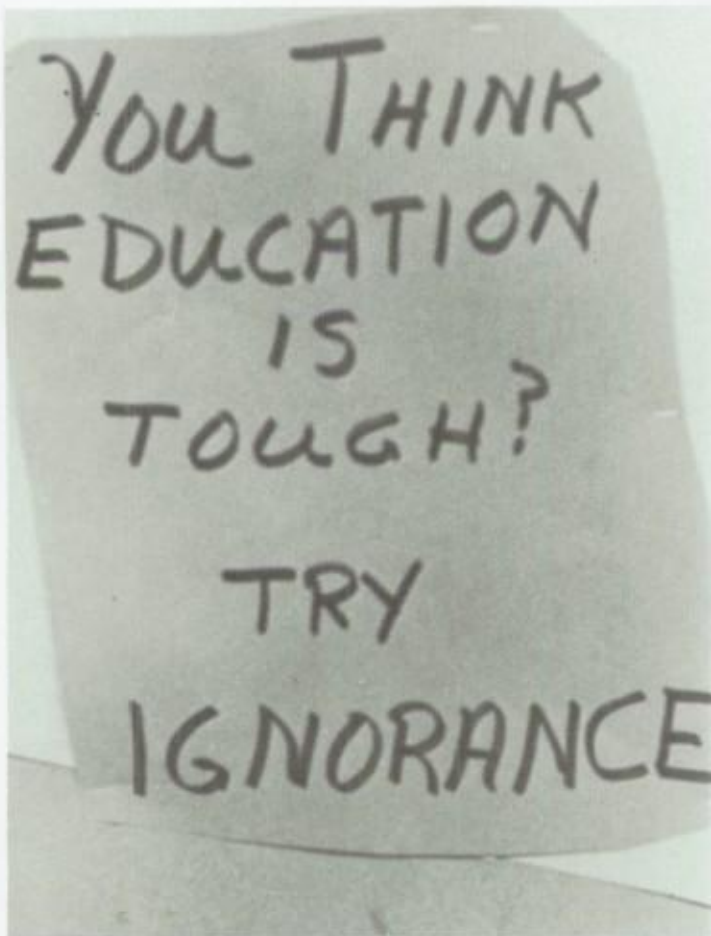 You THINK
EDUCATION
IS
TOUGH?
TRY
IGNORANCE